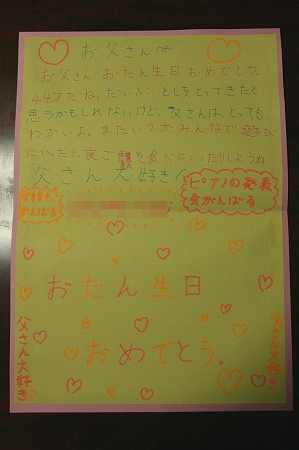 お父さんへ
お父さん おたん生日おめでとう。
44才だね。だいぶ、としをとってきたと
思うかもしれないけど。父さんは、とっても
わかいよ。またいつかみんなで遊び
にいったり、夜ご飯を食べにいったりしようね
父さん大好き!
ピアノの発表
会がんばる
がんばる
おたん生日
おめでとう。
父さん大好き
父さん大好き